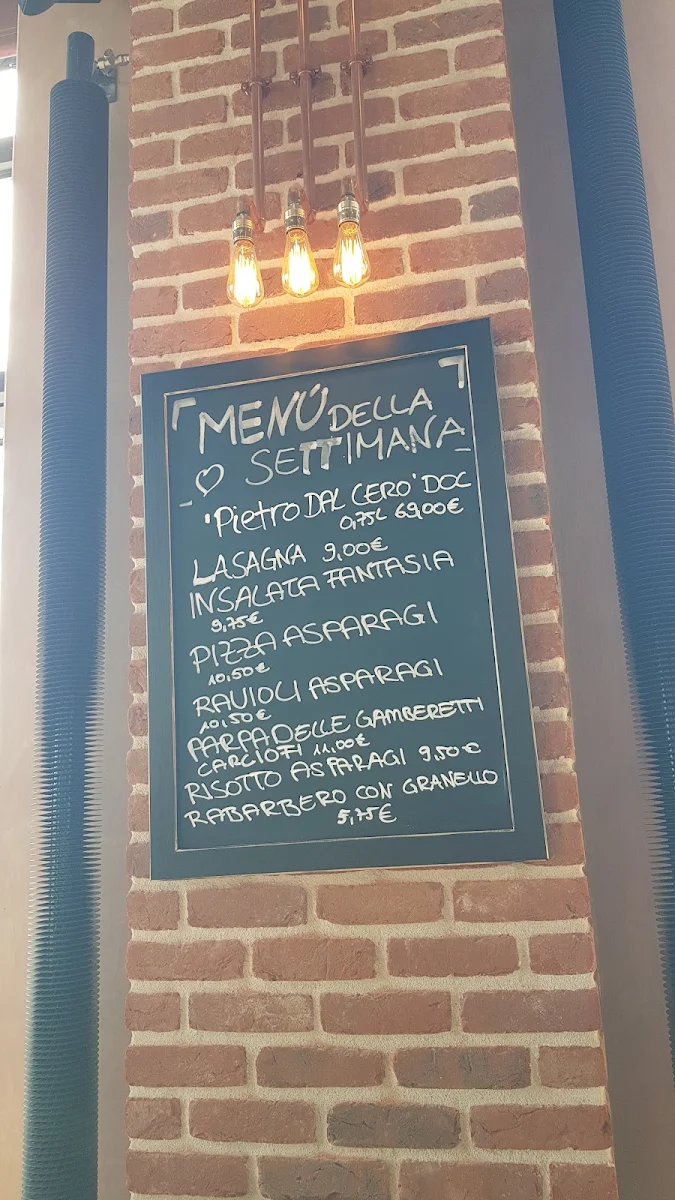 MENÚ DELLA
SETTIMANA
'Pietro DAL CERO' DOC
0,75L 69,00€
LASAGNA 9,00€
INSALATA FANTASIA
9,75€
PIZZA ASPARAGI
10,50€
RAVIOLI ASPARAGI
10,50€
PARPADELLE GAMBERETTI
CARCIOFI 11,00€
RISOTTO ASPARAGI 9,50€
RABARBERO CON GRANELLO
5,75€